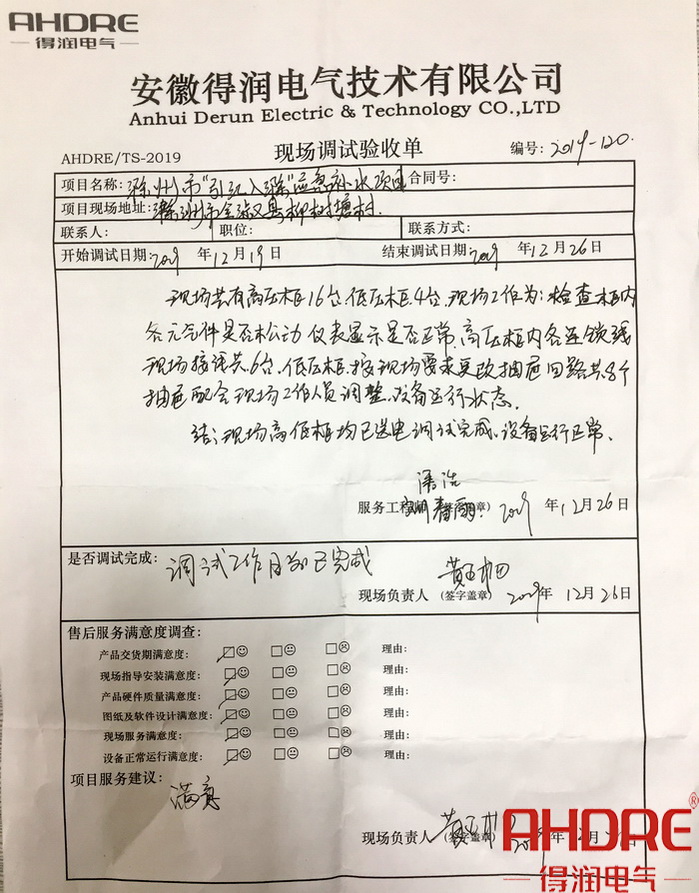 AHDRE
得润电气
安徽得润电气技术有限公司
Anhui Derun Electric & Technology CO.,LTD
AHDRE/TS-2019 现场调试验收单 编号: 2019-120
项目名称: 滁州市"引江入滁"应急补水项目 合同号:
项目现场地址: 滁州市全椒县柳树塘村
联系人: 职位: 联系方式:
开始调试日期: 2019 年 12 月 19 日 结束调试日期: 2019 年 12 月 26 日
现场共有高压柜16台,低压柜4台,现场工作为:检查柜内
各元气件是否松动 仪表显示是否正常,高压柜内各连锁线
现场接线共6台,低压柜,按现场要求更改抽屉回路共8个
抽屉配合现场工作人员调整,设备运行状态.
结:现场高低柜均已送电调试完成,设备运行正常.
服务工程师 (签字盖章) 2019 年 12 月 26 日
是否调试完成: 调试工作目前已完成
现场负责人 (签字盖章) 2019 年 12 月 26 日
售后服务满意度调查:
产品交货期满意度: 理由:
现场指导安装满意度: 理由:
产品硬件质量满意度: 理由:
图纸及软件设计满意度: 理由:
现场服务满意度: 理由:
设备正常运行满意度: 理由:
项目服务建议:
满意
现场负责人 (签字盖章)
AHDRE®
得润电气